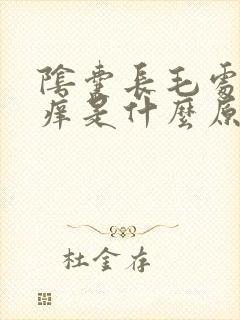 陰囊長毛處
痒是什麼原
杜金存